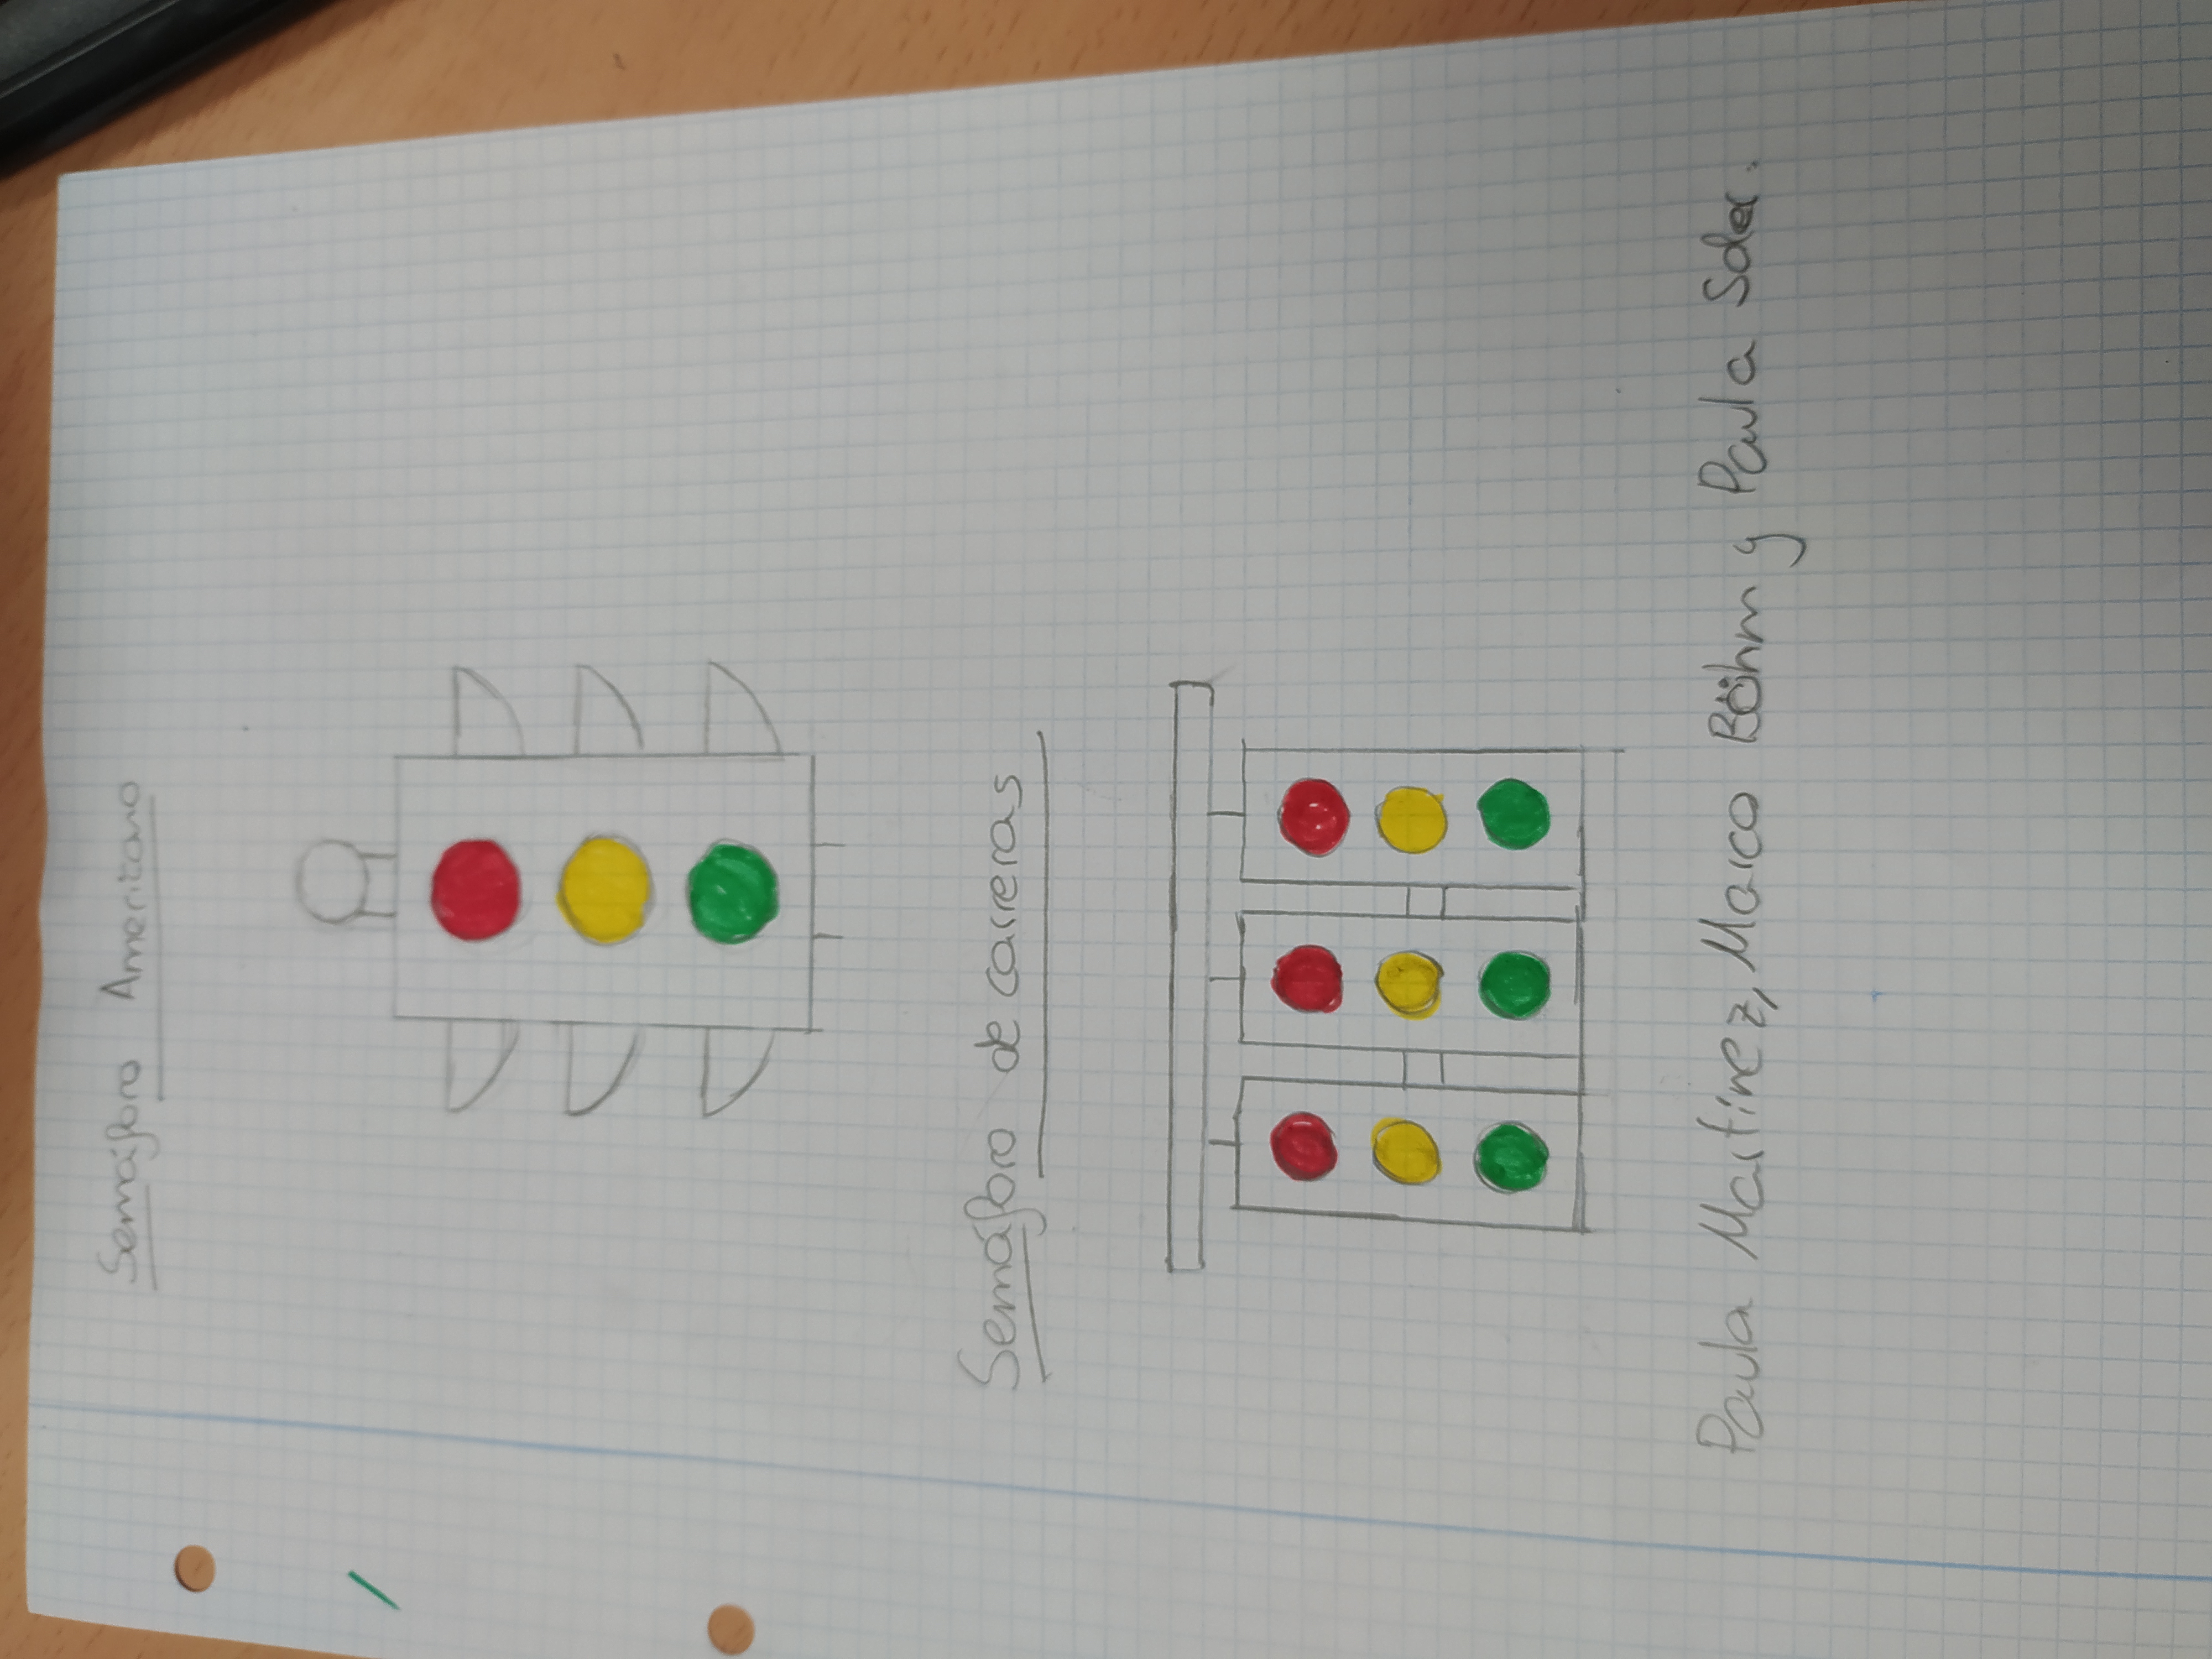 Semáforo Americano
Semáforo de carreras
Paula Martínez, Marco Böhm y Paula Soler.